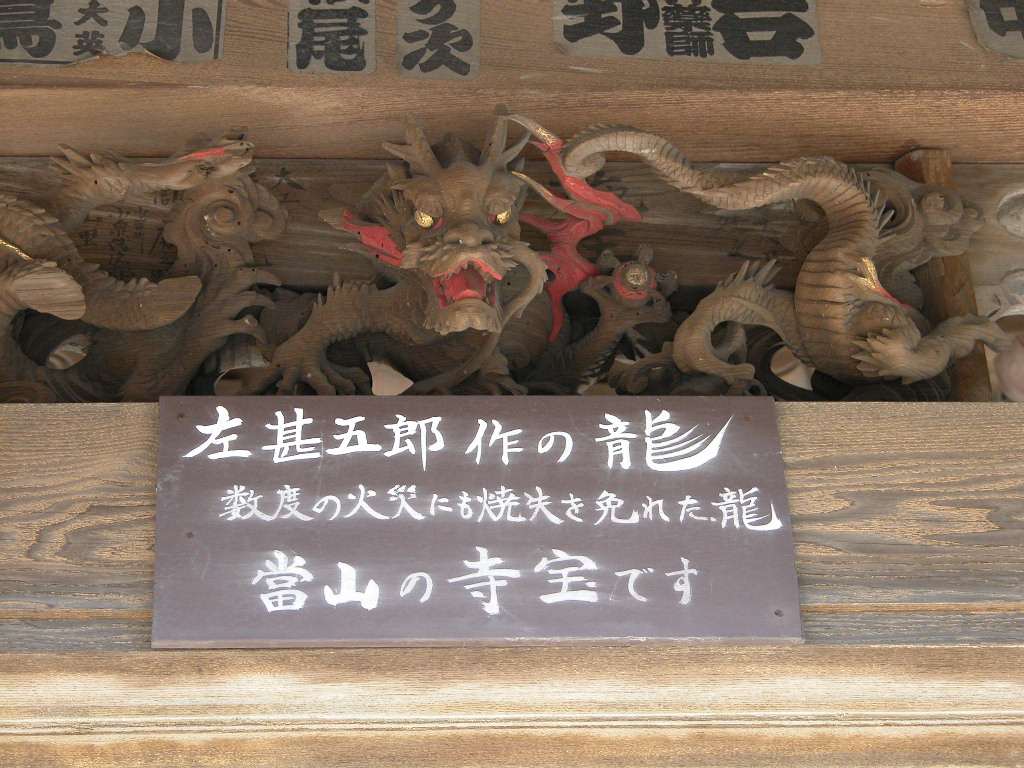 小
大英
尾
次
薬師
岩
野
左甚五郎作の龍
数度の火災にも焼失を免れた、龍
當山の寺宝です